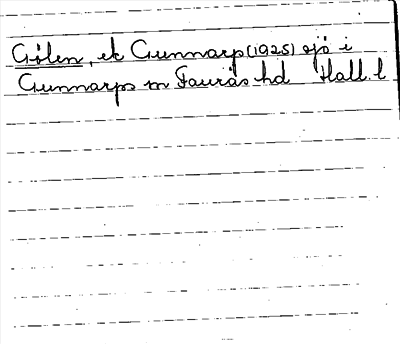 Gålen, ek Gunnarp (1925) sjö i
Gunnarps sn Faurås hd Hall. l